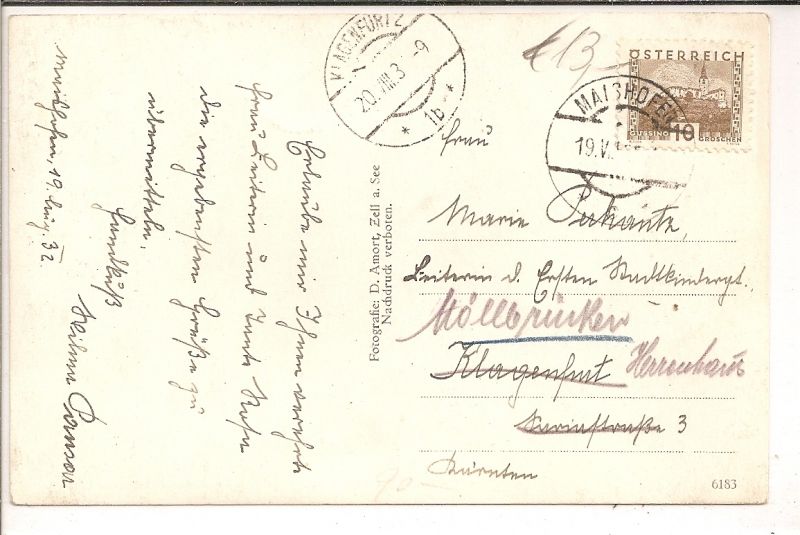 Maishofen, 19. Aug. 32
Erlaube mir Ihnen verehrte
Frau Leiterin und Tante
die ergebensten Grüße zu
übermitteln.
Handkuß
Fotografie: D. Amort, Zell a. See
Nachdruck verboten.
KLAGENFURT 2
20. VIII. 3 -9
* 1b *
ÖSTERREICH
GÜSSING 10 GROSCHEN
MAISHOFEN
19. VI
Frau
Marie
Leiterin d. Ersten Stadtkindergt.
Möllbrücken
Klagenfurt Herrenhaus
3
Kärnten
6183